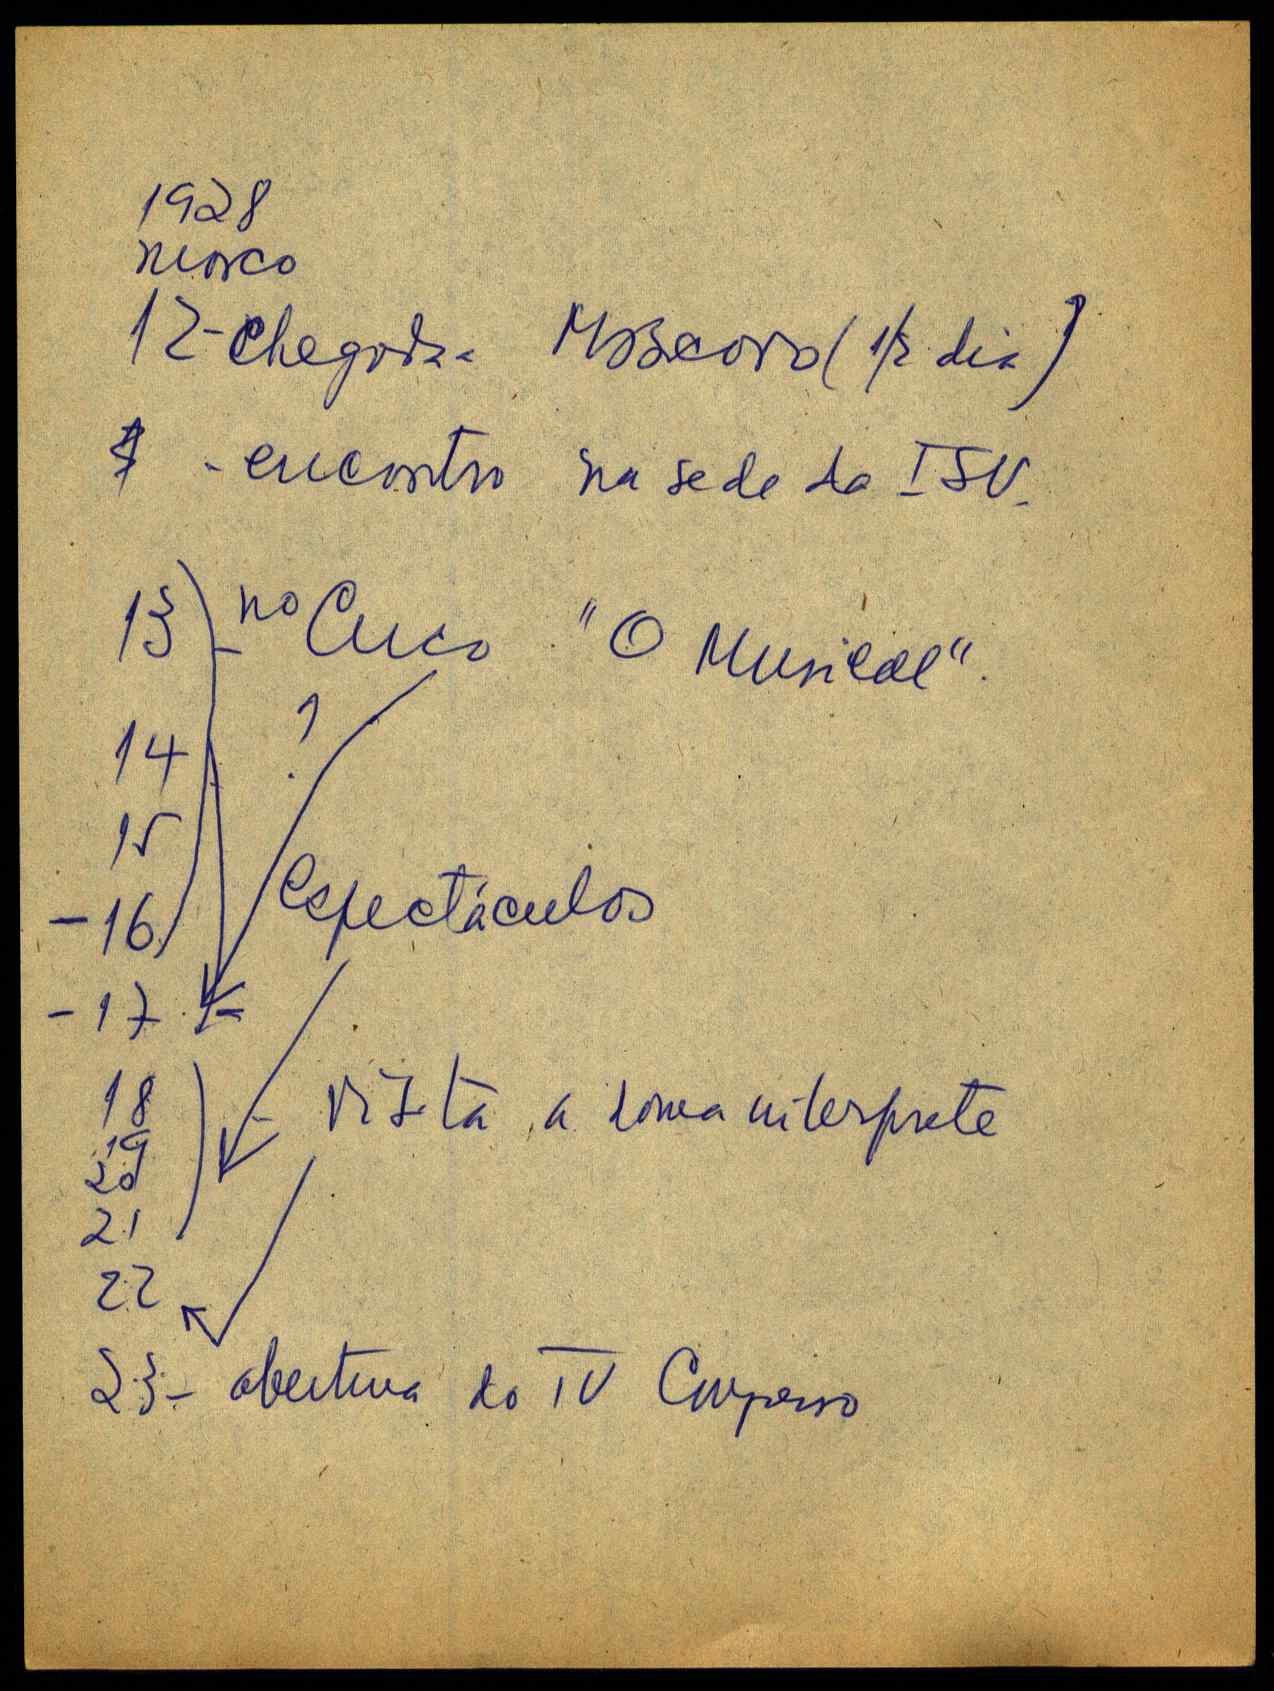 1928
março
12 - chegada a Moscovo (1/2 dia)
- encontro na sede da ISV.
13 - no Circo "O Musical".
14 ?
15
- 16 Espectáculos
- 17 -
18 - visita a dona interprete
19
20
21
22
23 - abertura do IV Congresso